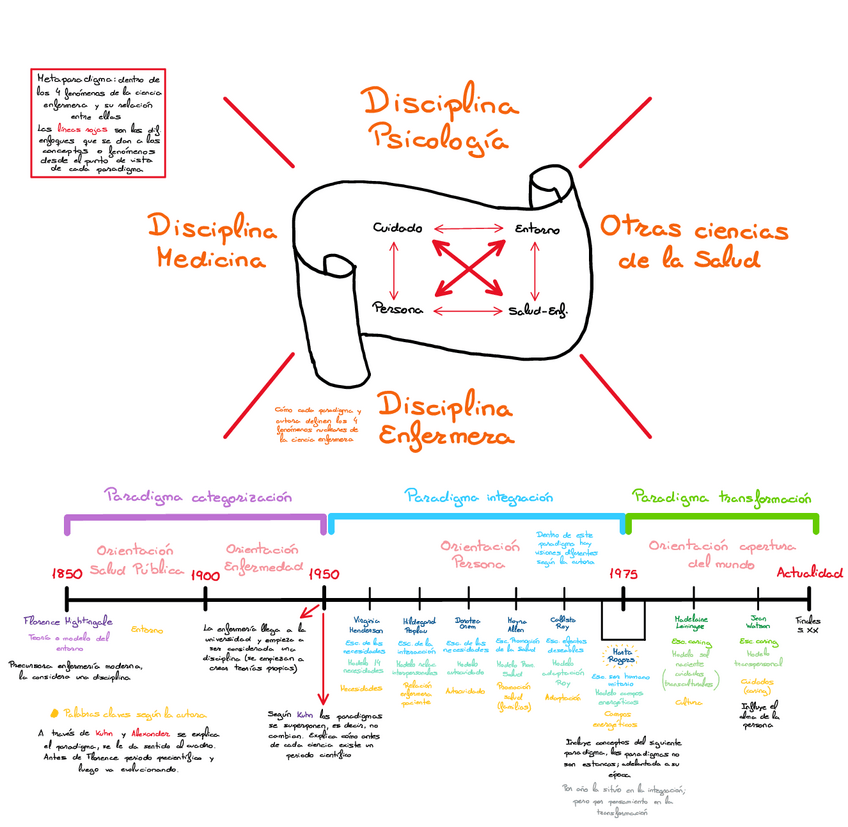 Metaparadigma: dentro de
los 4 fenómenos de la ciencia
enfermera y su relación
entre ellas
Las líneas rojas son los dif.
enfoques que se dan a los
conceptos o fenómenos
desde el punto de vista
de cada paradigma.
Disciplina
Psicología
Disciplina
Medicina
Otras ciencias
de la Salud
Cuidado
Entorno
Persona
Salud-Enf.
Cómo cada paradigma y
autora definen los 4
fenómenos nucleares de
la ciencia enfermera
Disciplina
Enfermera
Paradigma categorización
Paradigma integración
Paradigma transformación
Orientación
Salud Pública
Orientación
Enfermedad
Orientación
Persona
Dentro de este
paradigma hay
visiones diferentes
según la autora
Orientación apertura
del mundo
1850
1900
1950
1975
Actualidad
Florence Nightingale
Teoría o modelo del
entorno
Entorno
Precursora enfermería moderna,
la considera una disciplina
La enfermería llega a la
universidad y empieza a
ser considerada una
disciplina (se empiezan a
crear teorías propias)
Virginia
Henderson
Esc. de las
necesidades
Modelo 14
necesidades
Necesidades
Hildegard
Peplau
Esc. de la
interacción
Modelo relac.
interpersonales
Relación
enfermera
paciente
Dorotea
Orem
Esc. de las
necesidades
Modelo
autocuidado
Autocuidado
Moyra
Allen
Esc. Promoción
de la Salud
Modelo Prom.
Salud
Promoción
salud
(familias)
Callista
Roy
Esc. efectos
deseables
Modelo
adaptación
Roy
Adaptación
Marta
Rogers
Esc. ser humano
unitario
Modelo campos
energéticos
Campos
energéticos
Incluye conceptos del siguiente
paradigma, los paradigmas no
son estancos; adelantada a su
época
Por año la sitúo en la integración;
pero por pensamiento en la
transformación
Madelaine
Leininger
Esc. caring
Modelo sol
naciente
cuidados
(transculturales)
Cultura
Jean
Watson
Esc. caring
Modelo
transpersonal
Cuidados
(caring)
Influye el
alma de la
persona
Finales
s XX
Palabras claves según la autora
A través de Kuhn y Alexander se explica
el paradigma, se le da sentido al cuadro.
Antes de Florence periodo precientífico y
luego va evolucionando.
Según Kuhn los paradigmas
se superponen, es decir, no
cambian. Explica cómo antes
de cada ciencia existe un
periodo científico